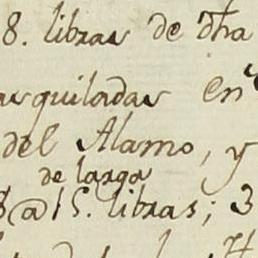 8. libras de dha
asquiladas en
del Alamo, y
de larga
8 @ 15. libras; 3